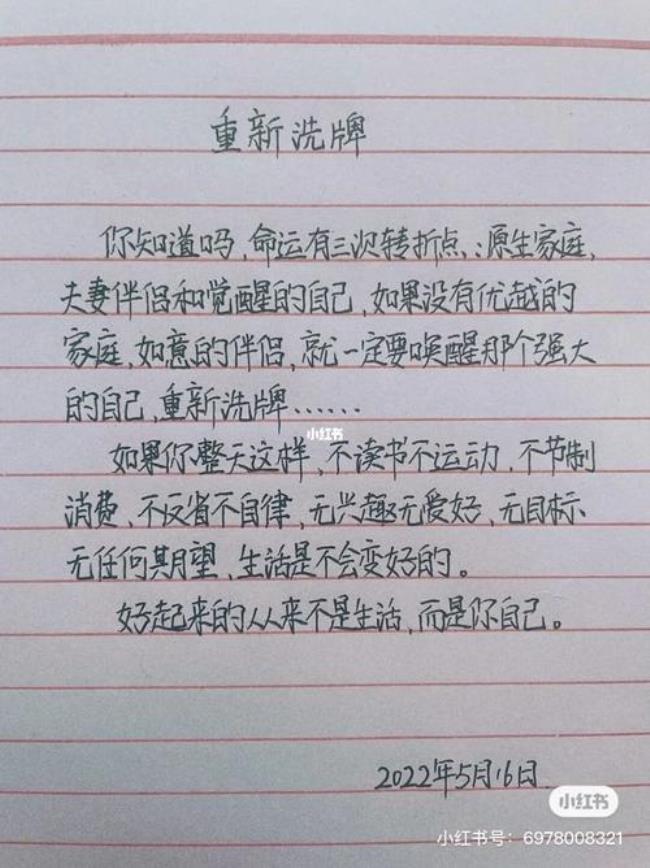 重新洗牌
你知道吗,命运有三次转折点,:原生家庭,
夫妻伴侣和觉醒的自己,如果没有优越的
家庭,如意的伴侣,就一定要唤醒那个强大
的自己,重新洗牌……
小红书
如果你整天这样,不读书不运动,不节制
消费,不反省不自律,无兴趣无爱好,无目标
无任何期望,生活是不会变好的。
好起来的从来不是生活,而是你自己。
2022年5月16日
小红书
小红书号:6978008321